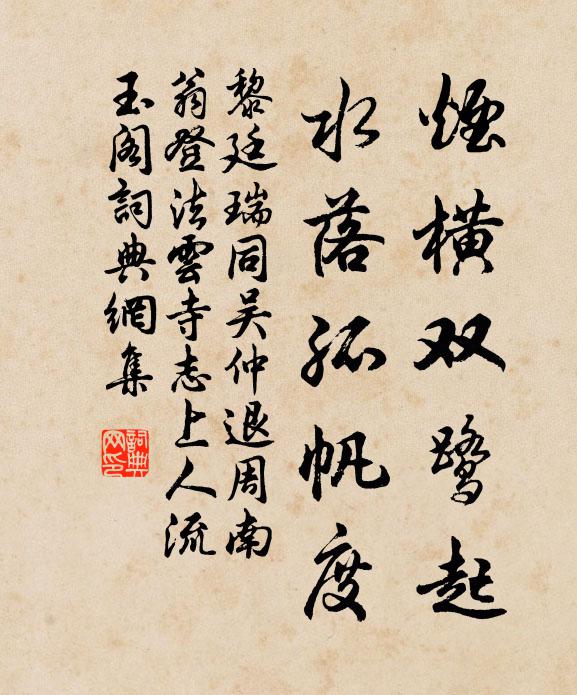 煙橫双鷺起
水落孤帆度
黎廷瑞同吴仲退周南
翁登法雲寺志上人流
玉阁詞典網集
詞典网印